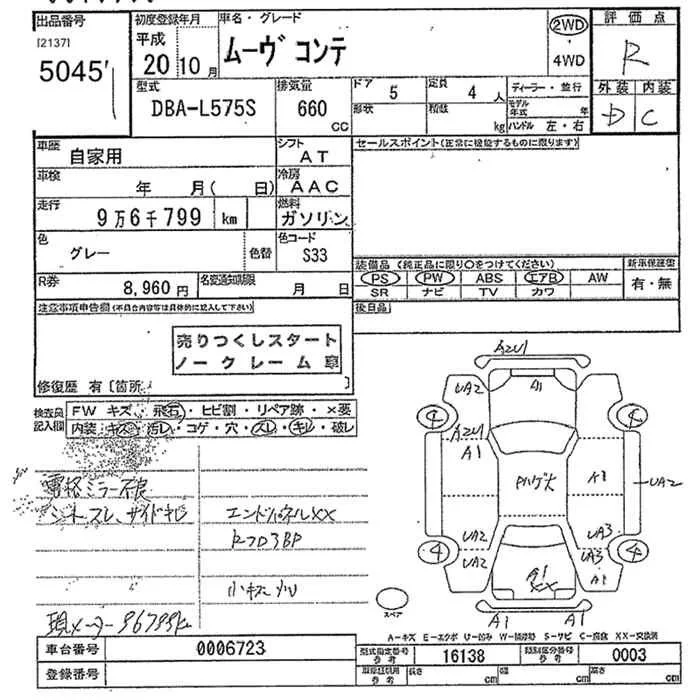 出品番号 初度登録年月 車名・グレード 評価点
[2137] 平成 ムーヴ コンテ 2WD R
5045 20 10月 4WD 外装 内装
型式 排気量 ドア 5 定員 4人 ディーラー・並行 D C
DBA-L575S 660 CC 形状 積載 kg モデル年式 年
ハンドル 左・右
車歴 自家用 シフト AT セールスポイント(正常に機能するものに限ります)
車検 年 月( 日) 冷房 AAC
走行 9万6千799 km 燃料 ガソリン
色 グレー 色替 色コード S33
装備品 (純正品に限り○をつけてください) 新車保証書
PS PW ABS エアB AW 有・無
SR ナビ TV カワ
R券 8,960円 名変通知期限 月 日 後日品
注意事項申告欄(不具合内容等は具体的に記入して下さい)
売りつくしスタート
ノークレーム 車
修復歴 有〔箇所 〕
検査員記入欄 FW キズ・飛石・ヒビ割・リペア跡・×要
内装・キズ・汚レ・コゲ・穴・スレ・キレ・破レ
電格ミラー不良
シートスレ、サイドキレ エンドパネルXX
小キズ
現メーター96799km
A2U1
UA2 A1 UA2
A2U1
A1
Pハゲ大
UA2
UA2 UA3
UA2 UA3
A1 XX A1
A1 A1
4 4 4 4
スペア
A-キズ E-エクボ U-凹み W-補修跡 S-サビ C-腐食 XX-交換済
車台番号 0006723 型式指定番号 参考 16138 類別区分番号 参考 0003
登録番号 参考 長さ cm 幅 cm 高さ cm